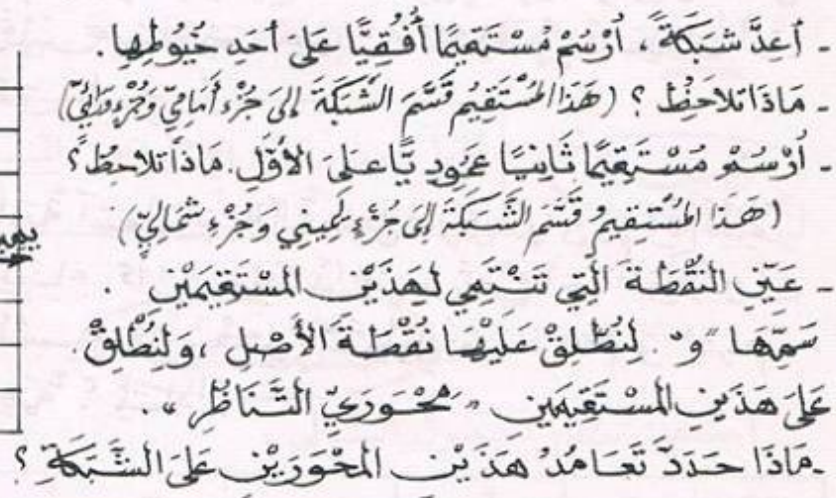 - أعِدَّ شَبَكَةً ، أُرْسُمْ مُسْتَقِيمًا أُفُقِيًّا عَلَى أَحَدِ خُيُوطِهِا .
- مَاذَا تلاحَظِ ؟ (هَذَا المُسْتَقِيمُ قَسَّمَ الشَّبَكَةَ إِلَى جُزْءٍ أَمَامِيّ وَجُزْءٍ وَرَائِيّ)
- أُرْسُمْ مُسْتَقِيمًا ثَانِيًا عَمُودِيًّا عَلَى الأوَّلِ . مَاذَا تلاحظ ؟
(هَذَا المُسْتَقِيمُ قَسَّمَ الشَّبَكَةَ إِلَى جُزْءٍ يَمِينِي وَجُزْءٍ شَمَالِيّ) .
- عَيِّنِ النُّقْطَةَ الَّتِي تَنْتَمِي لِهَذَيْنِ المسْتَقِيمَيْنِ .
سَمِّهَا "و" . لِنُطْلِقْ عَلَيْهَا نُقْطَةَ الأَصْلِ ، وَلْنُطْلِقْ
عَلَى هَذَيْنِ المُسْتَقِيمَيْنِ " مِحْوَرَيّ التَّنَاظُرِ " .
- مَاذَا حَدَّدَ تَعَامُدُ هَذَيْنِ المحْوَرَيْنِ عَلَى الشَّبَكَةِ ؟